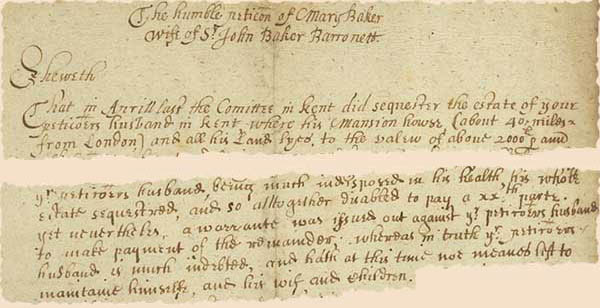 The humble peticōn of Mary Baker
wife of Sr. John Baker Barronett.
Sheweth
That in Aprill last the Comittee in Kent did sequester the estate of your
peticōers husband in Kent where his Mansion howse (about 40 miles
from London) and all his Land lyes, to the valew of about 2000li p ann
yr peticōers husband, being much indisposed in his health, his whole
estate sequestred, and so alltogether disabled to pay a xxth parte.
yet nevertheles, a warrante was issued out against yr peticōers husband
to make payment of the remainder, whereas in truth yr peticōers
husband is much indebted, and hath at this time not meanes left to
maintaine himselfe, and his wife and Children.